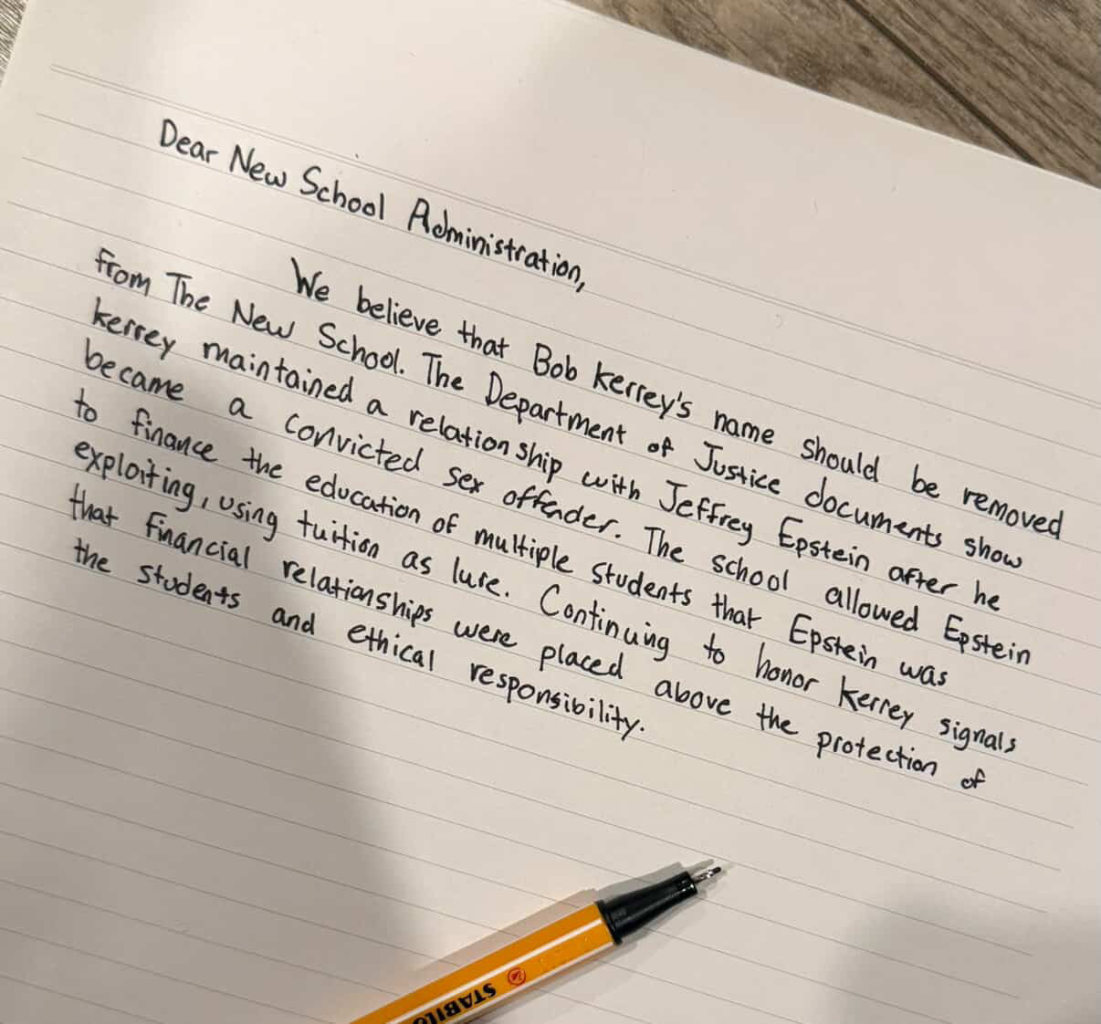 Dear New School Administration,
We believe that Bob kerrey's name should be removed
from The New School. The Department of Justice documents show
kerrey maintained a relationship with Jeffrey Epstein after he
became a convicted sex offender. The school allowed Epstein
to finance the education of multiple students that Epstein was
exploiting, using tuition as lure. Continuing to honor kerrey signals
that financial relationships were placed above the protection of
the students and ethical responsibility.
STABILO